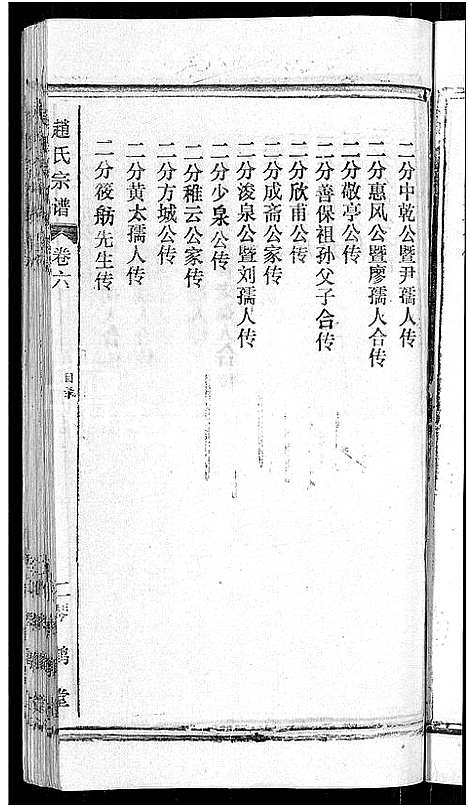 二分中乾公暨尹孺人传
二分惠风公暨廖孺人合传
二分敬亭公传
二分善保祖孙父子合传
二分欣甫公传
二分成斋公家传
二分浚泉公暨刘孺人传
二分少泉公传
二分稚云公家传
二分方城公传
二分黄太孺人传
二分後舫先生传
趙氏宗谱
卷六
目录
二
琴鹤堂